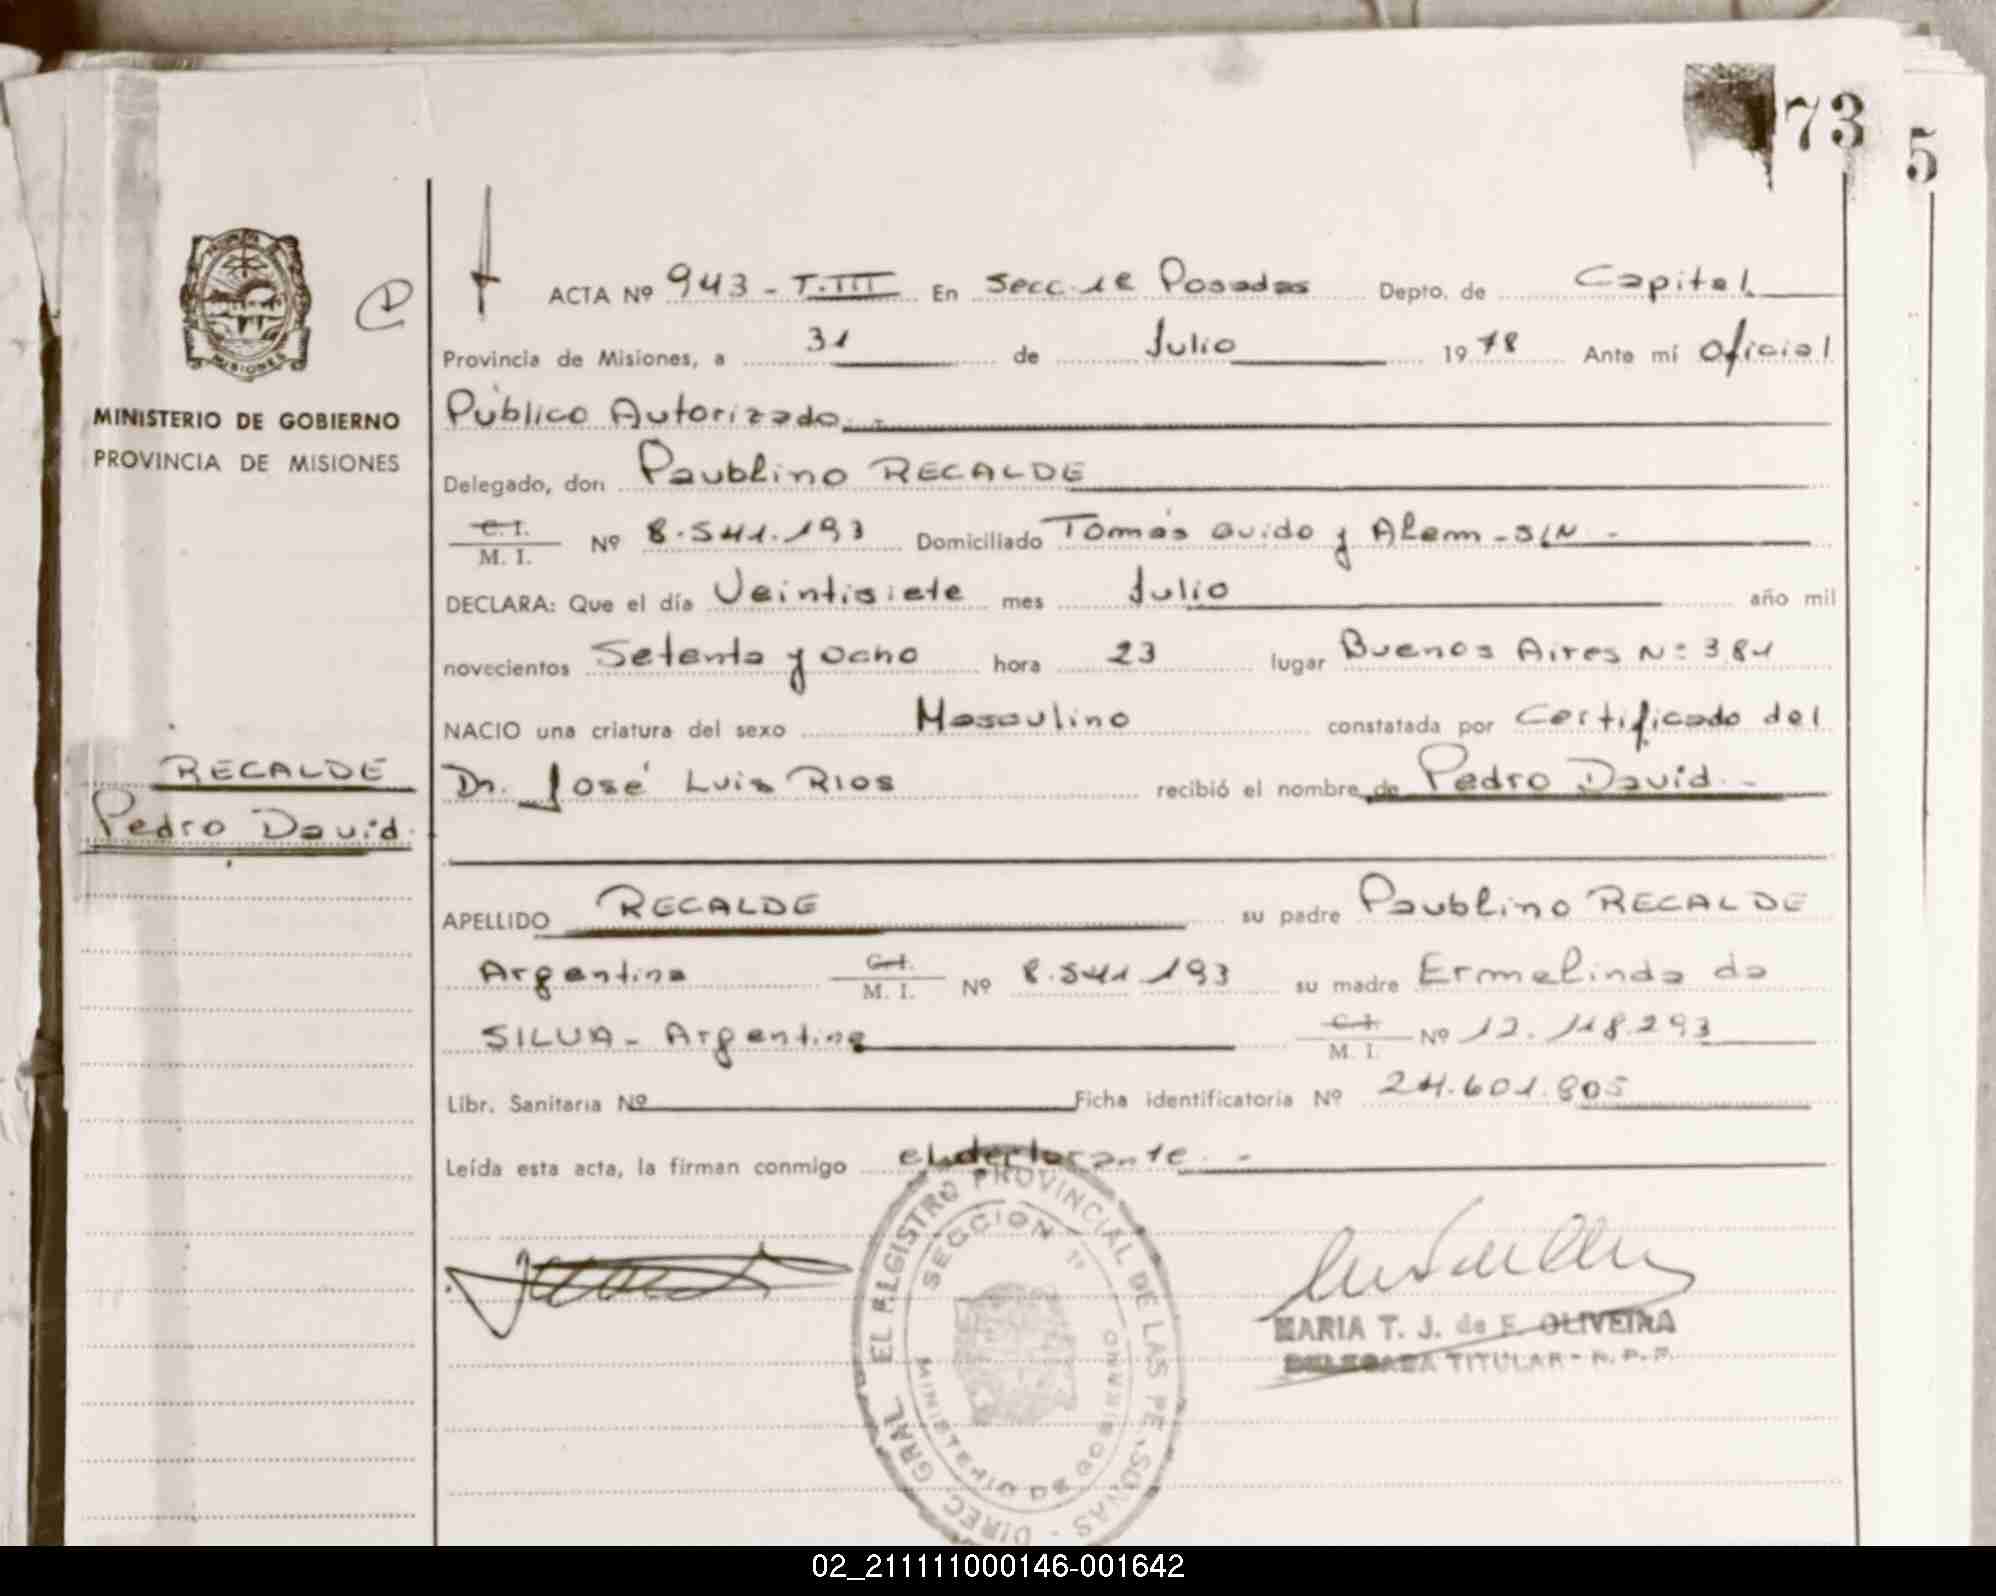 73
5
ACTA Nº 943 - T.III En Secc. 1ª Posadas Depto. de Capital
Provincia de Misiones, a 31 de Julio 1978 Ante mí Oficial
MISIONES
MINISTERIO DE GOBIERNO
PROVINCIA DE MISIONES
Público Autorizado. -
Delegado, don Paublino RECALDE
C. I.
M. I. Nº 8.541.193 Domiciliado Tomás Guido y Alem - S/N -
DECLARA: Que el día Veintisiete mes Julio año mil
novecientos Setenta y ocho hora 23 lugar Buenos Aires Nº 381
NACIO una criatura del sexo Masculino constatada por Certificado del
RECALDE
Pedro David.
Dr. José Luis RIOS recibió el nombre de Pedro David. -
APELLIDO RECALDE su padre Paublino RECALDE
Argentino C.I. M. I. Nº 8.541.193 su madre Ermelinda da
SILVA - Argentina C.I. M. I. Nº 12.118.293
Libr. Sanitaria Nº Ficha identificatoria Nº 24.601.805
Leída esta acta, la firman conmigo el declarante. -
DIREC. GRAL. EL REGISTRO PROVINCIAL DE LAS PERSONAS
SECCION 1ª
MINISTERIO DE GOBIERNO
MARIA T. J. de F. OLIVEIRA
DELEGADA TITULAR - R. P. P.
02_211111000146-001642